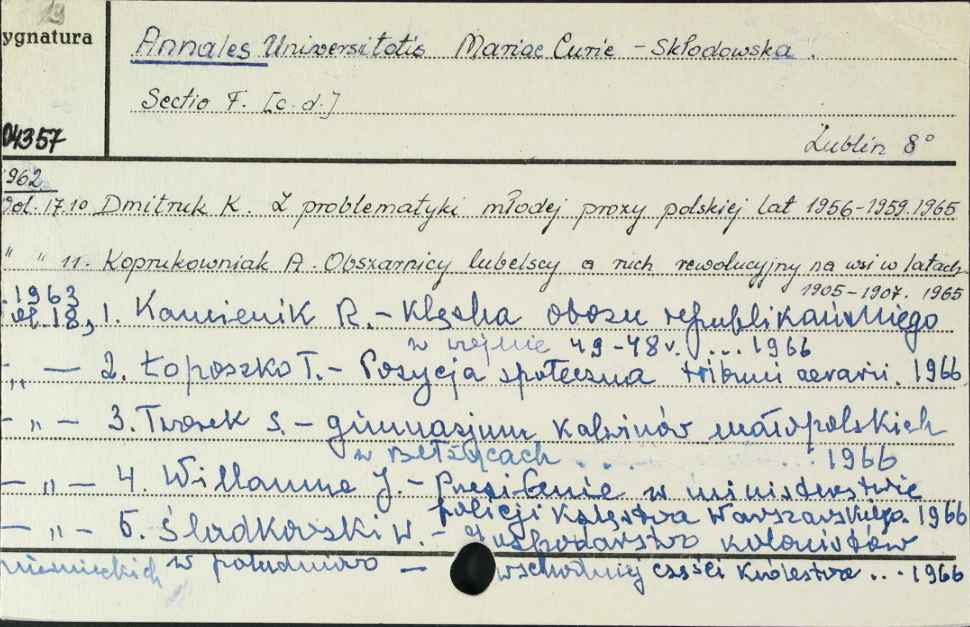 19
ygnatura
Annales Universitatis Mariae Curie - Skłodowska.
Sectio F. [c. d.]
04357
Lublin 8°
1962
Vol. 17.10 Dmitruk K. Z problematyki młodej prozy polskiej lat 1956-1959. 1965
" " 11. Koprukowniak A. Obszarnicy lubelscy a ruch rewolucyjny na wsi w latach
1905-1907. 1965
1963
vol. 18, 1. Kamienik R. - Klęska obozu republikańskiego
w wojnie 49-48 r. ... 1966
- " - 2. Łoposzko T. - Pozycja społeczna tribuni aerarii. 1966
- " - 3. Tworek S. - gimnasjum kalwinów małopolskich
w Bełżycach ... 1966
- " - 4. Willaume J. - Przesilenie w ministerstwie
policji Księstwa Warszawskiego. 1966
- " - 5. Śladkowski W. - Gospodarstwo kolonistów
niemieckich w południowo - wschodniej części Królestwa ... 1966